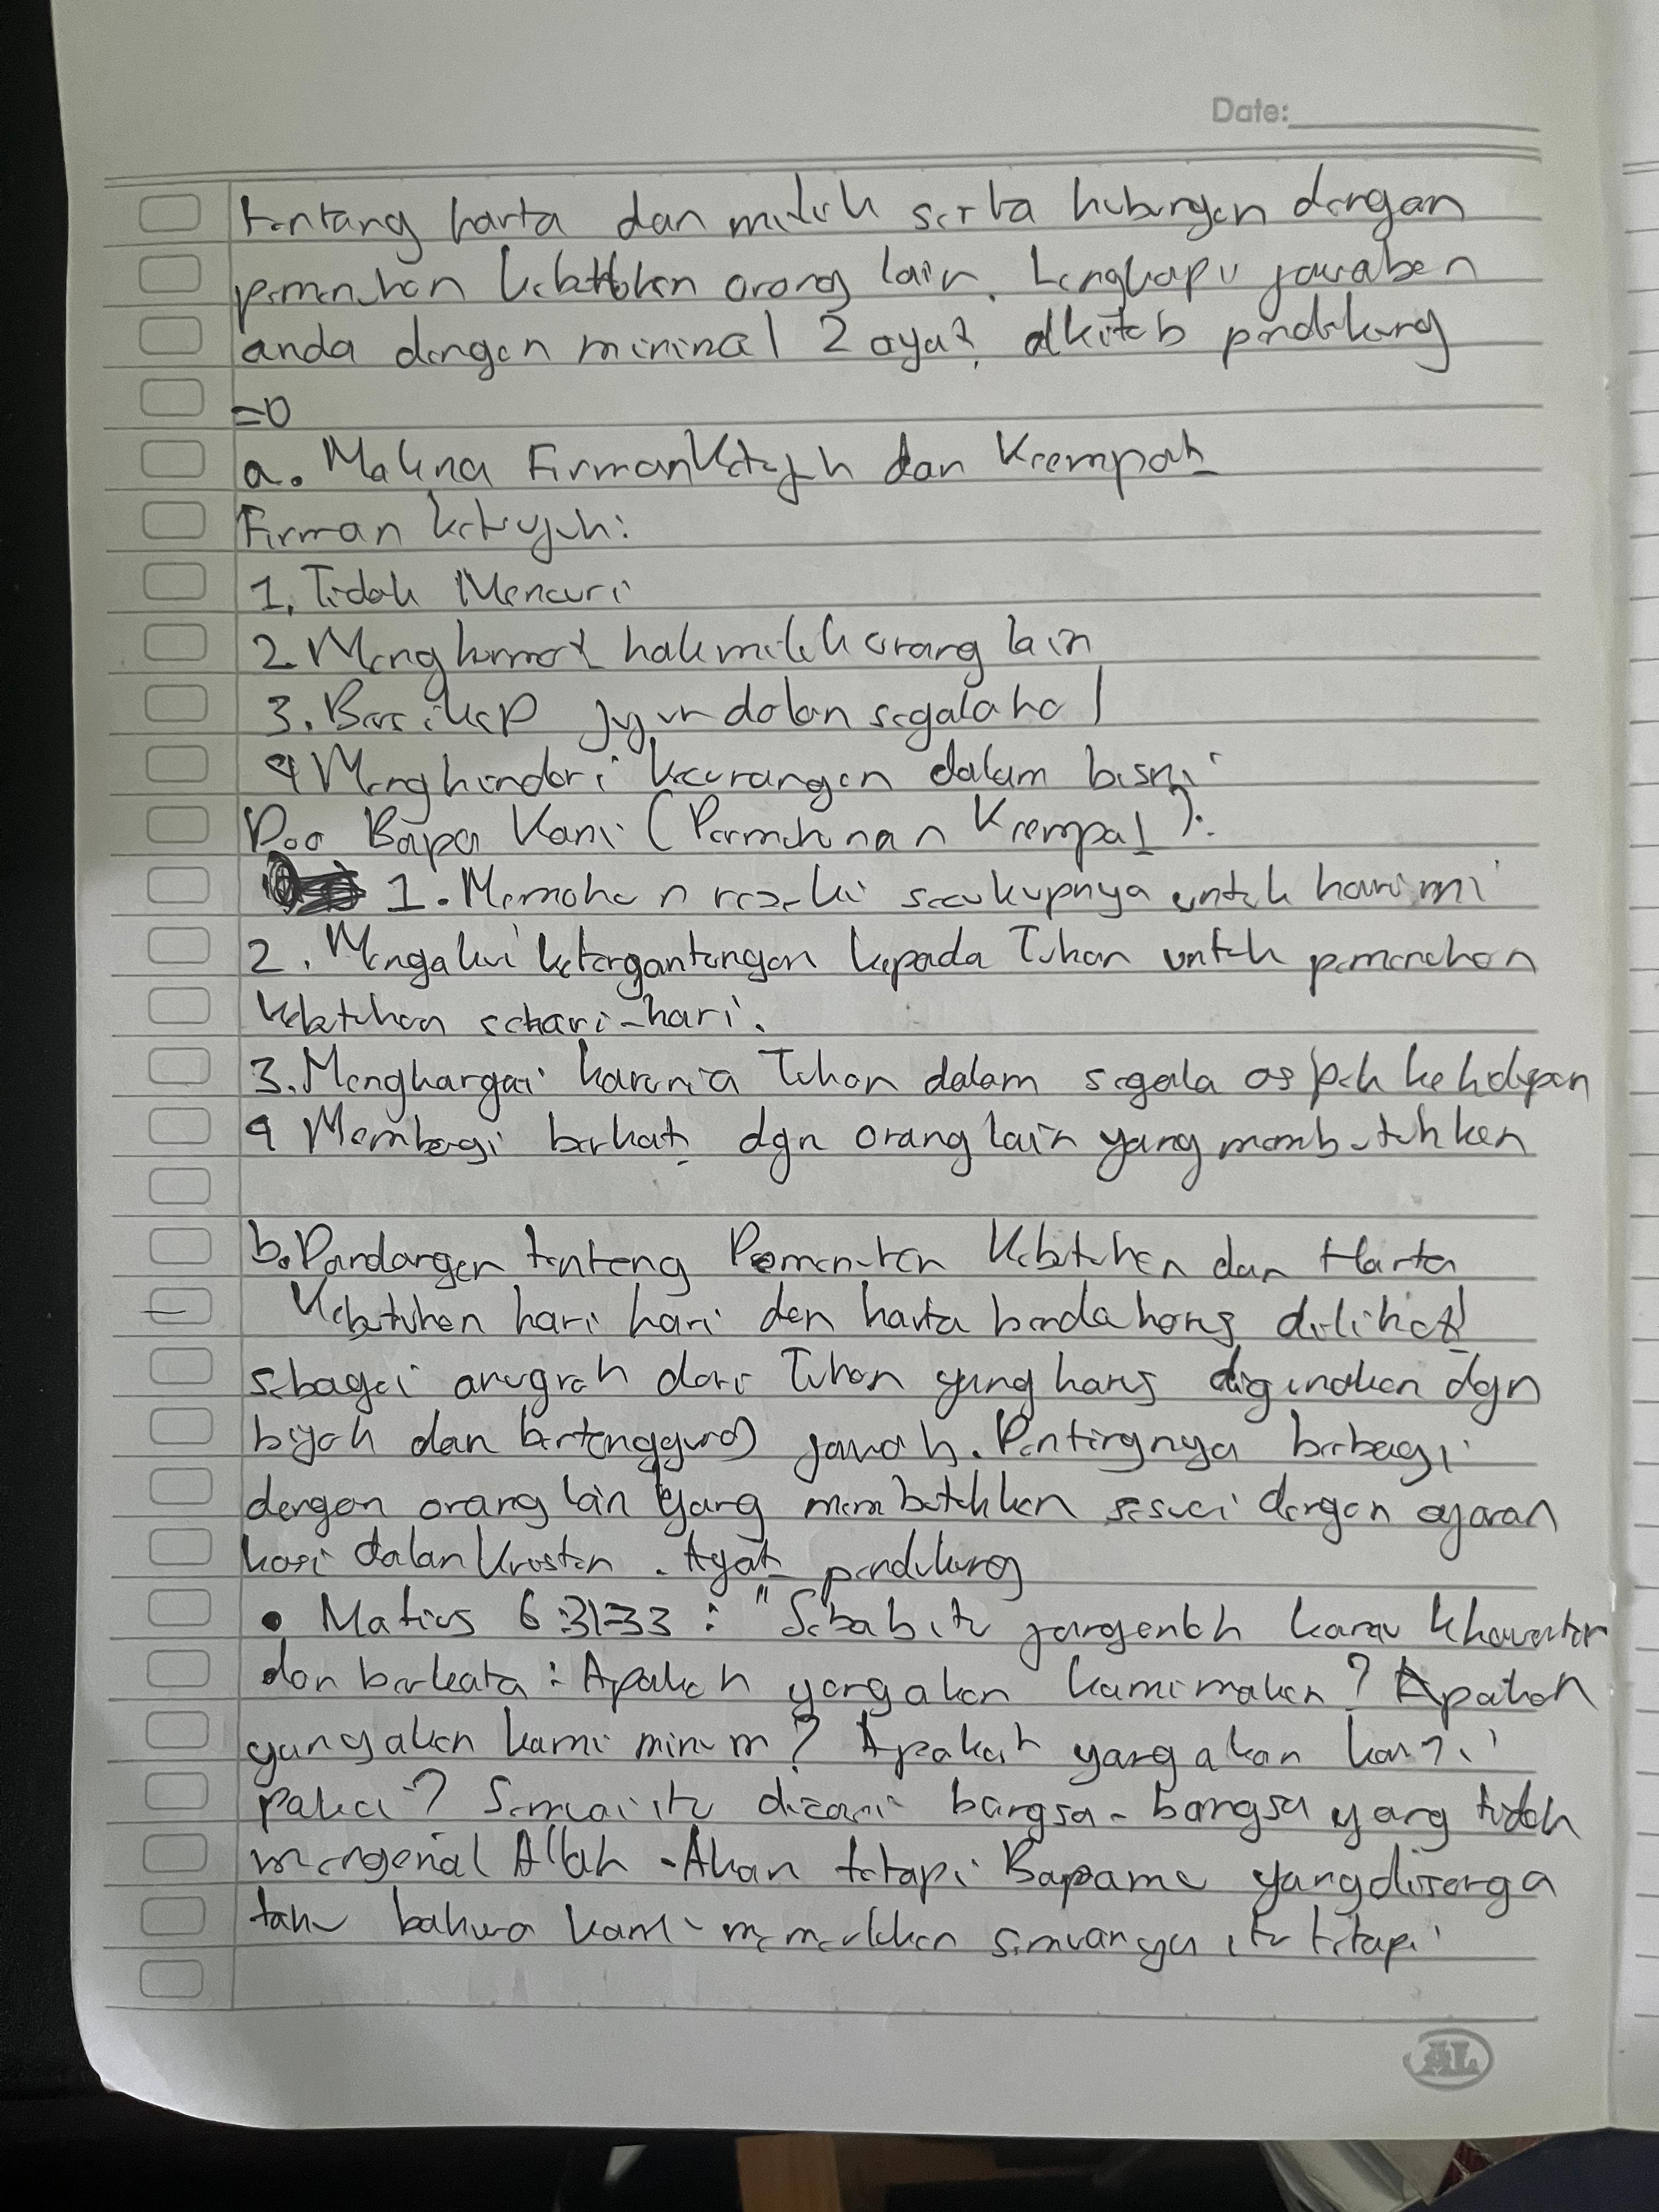 Date:
tentang harta dan milik serta hubungan dengan
pemenuhan kebutuhan orang lain. Lengkapi jawaban
anda dengan minimal 2 ayat alkitab pendukung
=0
a. Makna Firman Ketujuh dan Keempat
Firman ketujuh:
1. Tidak Mencuri
2. Menghormat hak milik orang lain
3. Bersikap jujur dalam segala hal
4 Menghindari kecurangan dalam bisni
Doa Bapa Kami (Permohonan Keempat):
1. Memohon rezeki secukupnya untuk hari ini
2. Mengakui ketergantungan kepada Tuhan untuk pemenuhan
kebutuhan sehari-hari.
3. Menghargai karunia Tuhan dalam segala aspek kehidupan
4 Membagi berkat dgn orang lain yang membutuhkan
b. Pandangan tentang Pemenuhan Kebutuhan dan Harta
Kebutuhan hari hari dan harta benda harus dilihat
sebagai anugrah dari Tuhan yang harus digunakan dgn
bijak dan bertanggung jawab. Pentingnya berbagi
dengan orang lain yang membutuhkan sesuai dengan ajaran
kasi dalam Kristen. Ayat pendukung
• Matius 6:31-33 : "Sebab itu janganlah kamu khawatir
dan berkata : Apakah yang akan kami makan? Apakah
yang akan kami minum? Apakah yang akan kami
pakai? Semua itu dicari bangsa-bangsa yang tidak
mengenal Allah. Akan tetapi Bapamu yang disorga
tahu bahwa kamu memerlukan semuanya itu tetapi
AL